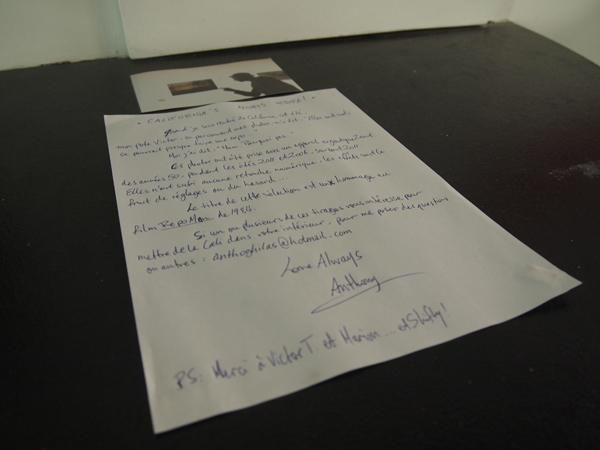 Quand je suis rentré de Californie cet été,
mon pote Victor, en parcourant mes photos, m'a dit: "Elles sont cools
ce pourrait presque faire une expo..."
Moi j'ai dit: "Hum. Pourquoi pas."
Ces photos ont été prise avec un appareil argentique
des années 50, pendant les étés 2011 et 2006. Surtout 2011
Elles n'ont subi aucune retouche numérique: les effets sont le
fruit de réglages ou du hasard...
Le titre de cette sélection est un hommage au
film Repo Man de 1984.
Si un ou plusieurs de ces tirages vous intéresse pour
mettre de la Cali dans votre intérieur, pour me poser des questions
ou autres: anthoghilas@hotmail.com
Love Always
Anthony
PS: Merci à Victor T. et Marion... et